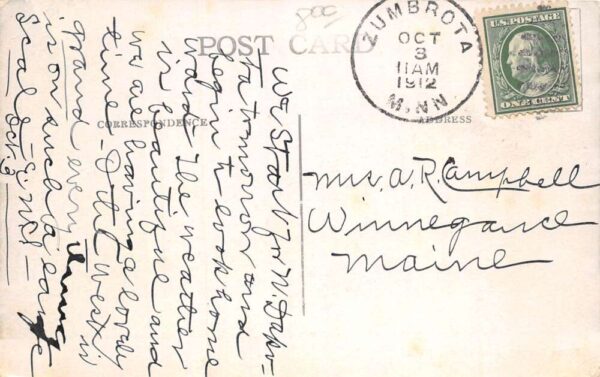 800
POST CARD
ZUMBROTA
OCT
3
11AM
1912
MINN.
U.S.POSTAGE
ONE CENT
CORRESPONDENCE
ADDRESS
We Start for N. Dako-
ta tomorrow and
begin to look home
ward. The weather
is beautiful and
we are having a lovely
time - The West is
grand every thing
is on such a large
scale -
Oct. 3
Mrs. A. R. Campbell
Winnegance
Maine